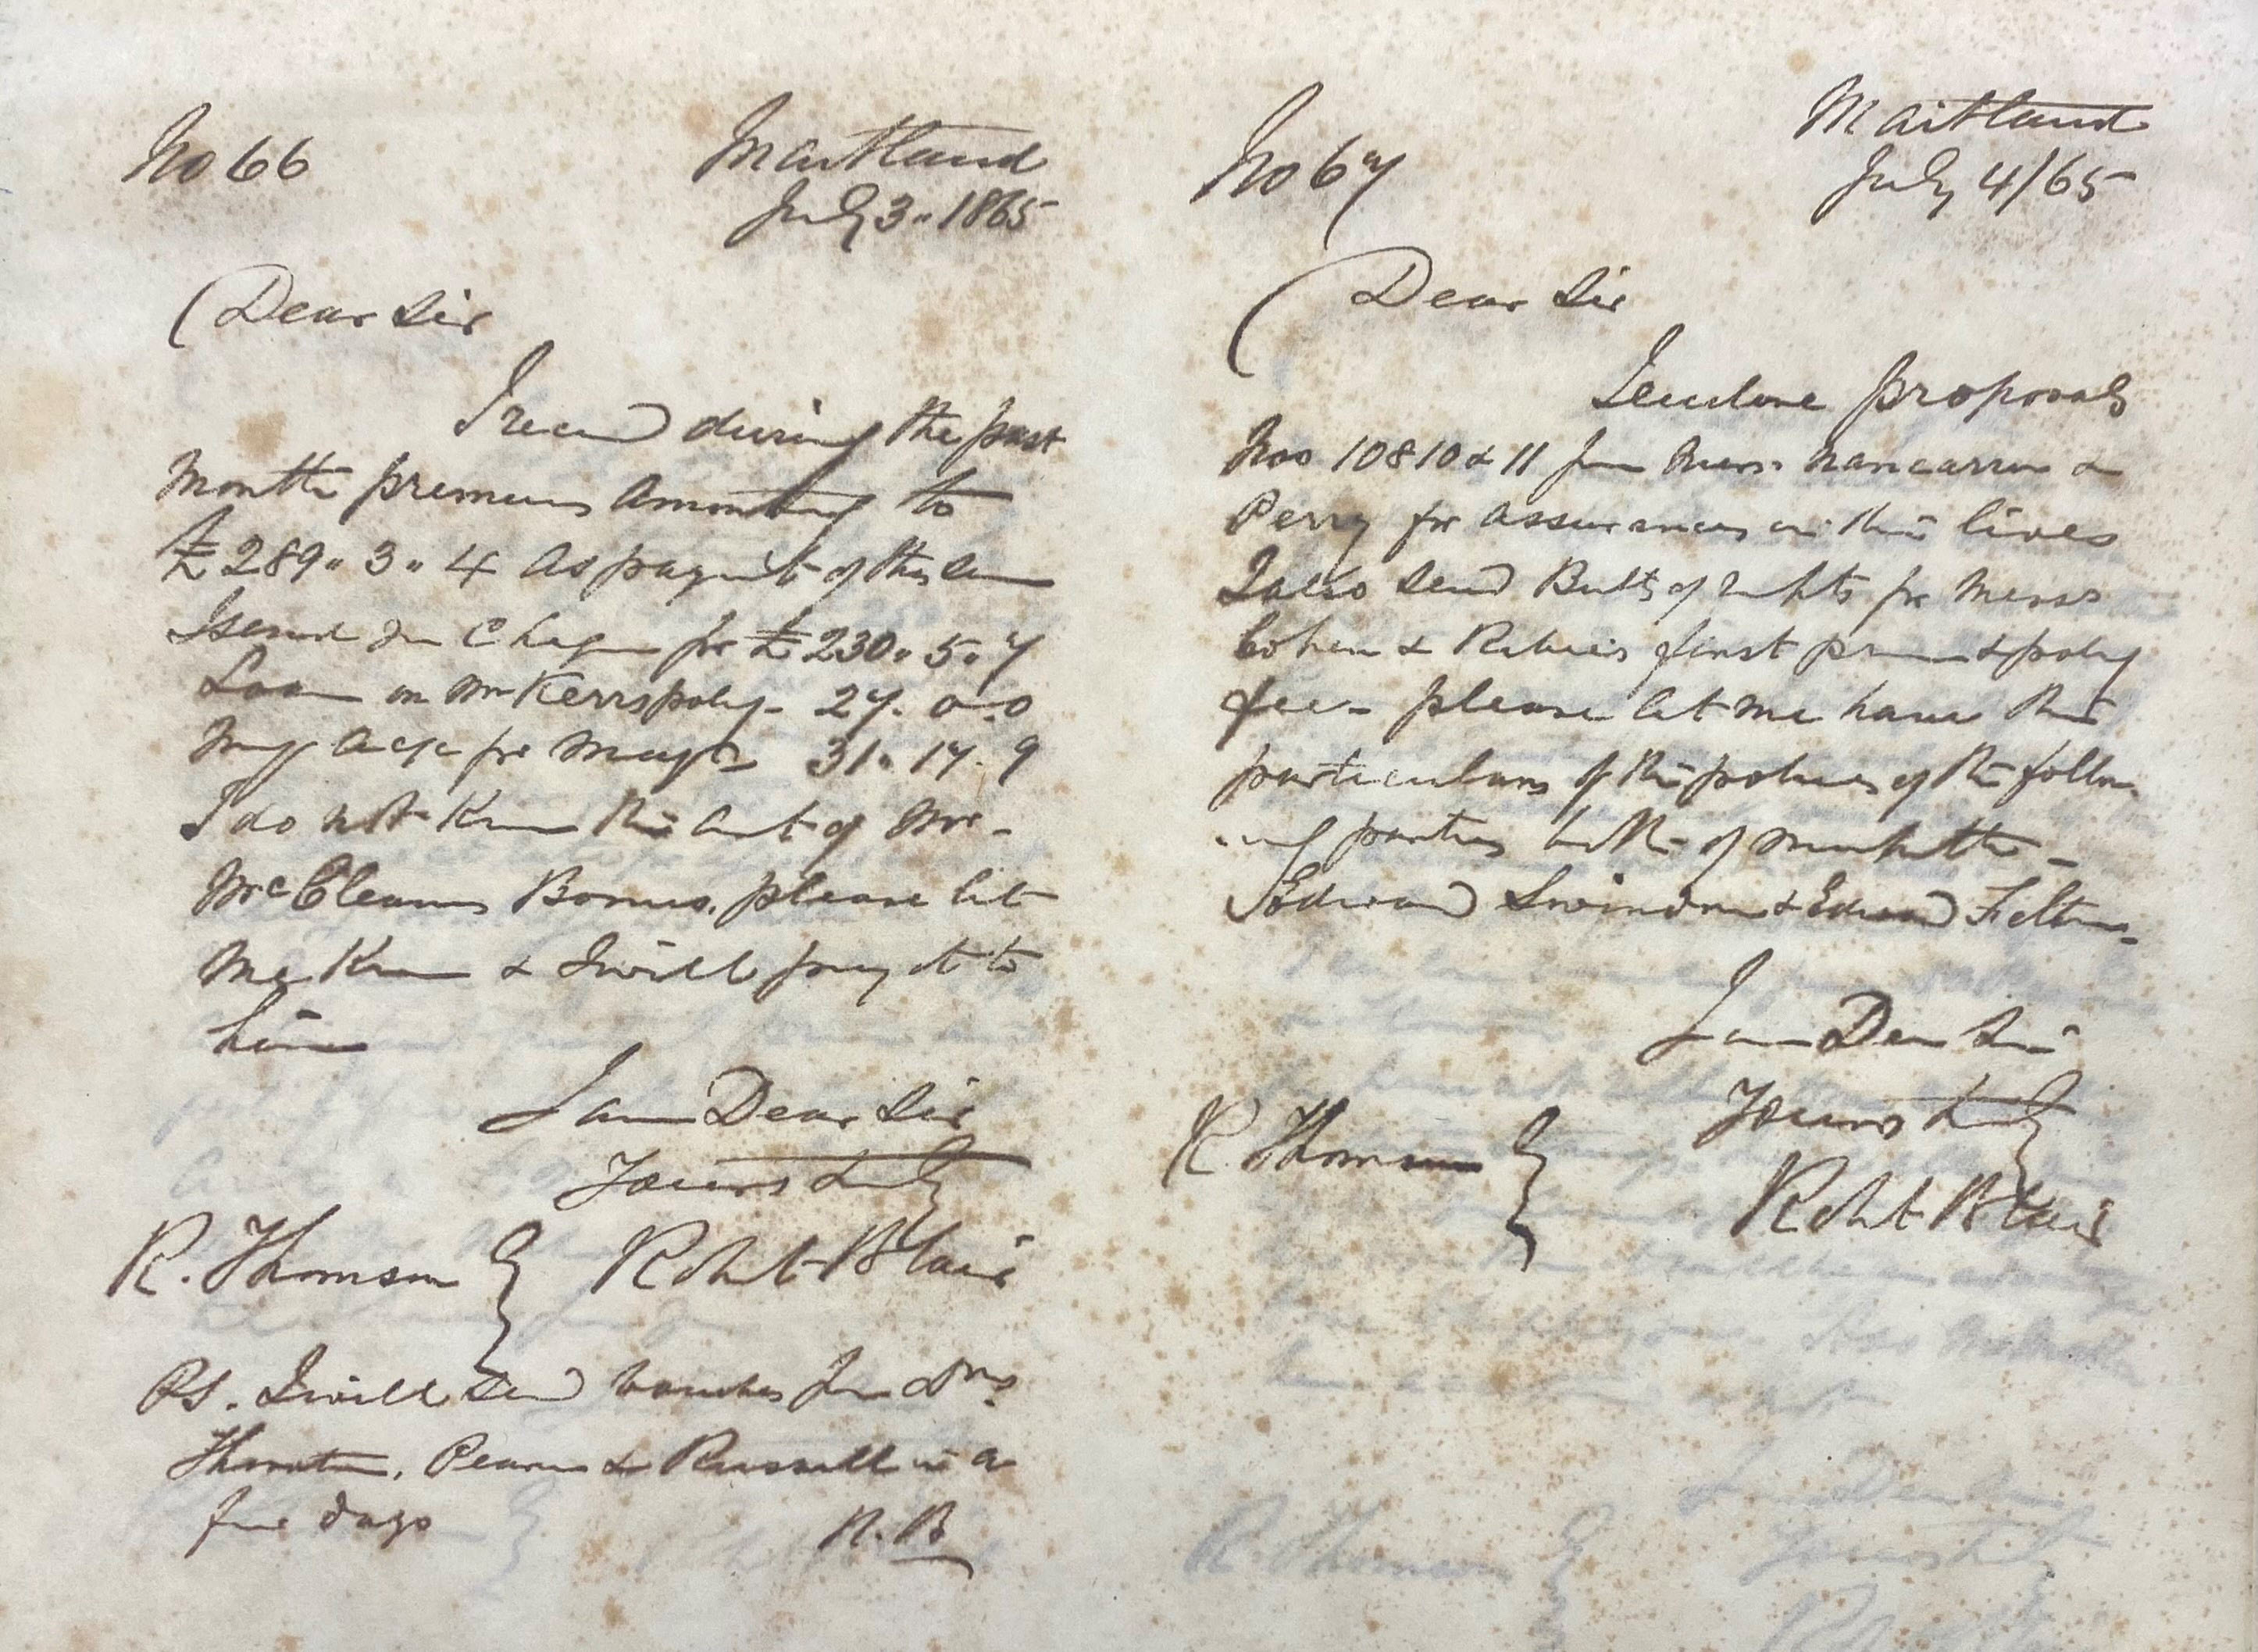 No 66
Maitland
July 3 " 1865
Dear Sir
I recd during the past
Month premiums Amounting to
£289 " 3 " 4 As paymt of this sum
I send Dr Cheque for £230 " 5 " 7
Loan on Mr Kerrs policy - 27. 0.0
My a/c for 31 " 17. 9
I do not know the Amt of Mr -
McCleans Bonus, please let
Me Know & I will pay it to
him
I am Dear Sir
Yours truly
R. Thomson } Robt Blair
PS. I will send vouchers for Drs
Thornton, Pearce & Russell in a
few days
R. B
No 67
Maitland
July 4/65
Dear Sir
I enclose proposals
Nos 10810 & 11 from Messrs Nancarrow &
Perry for assurances on their lives
I also send Butts of for Messrs
Cohen & first prem & policy
fee - please let me have the
particulars of the policies of the follow
ing parties both of -
Edward & Edward Felton -
I am Dear Sir
Yours truly
R. Thomson }
Robt Blair